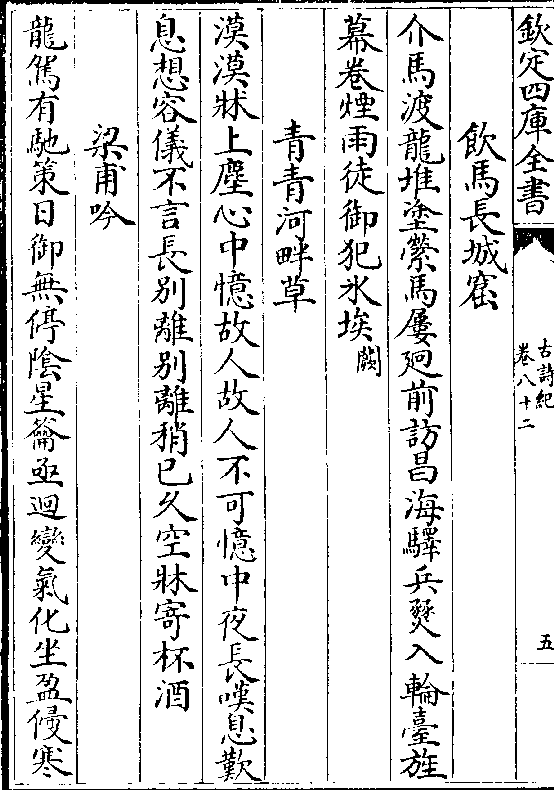 欽定四庫全書
古詩紀
卷八十二
五
飲馬長城窟
介馬渡龍堆塗縈馬屢廻前訪昌海驛兵燹入輪臺旌
幕卷煙雨徒御犯氷埃闕
青青河畔草
漠漠牀上塵心中憶故人故人不可憶中夜長嘆息歎
息想容儀不言長别離别離稍已久空牀寄杯酒
梁甫吟
龍駕有馳策日御無停陰星籥亟迴變氣化坐盈侵寒